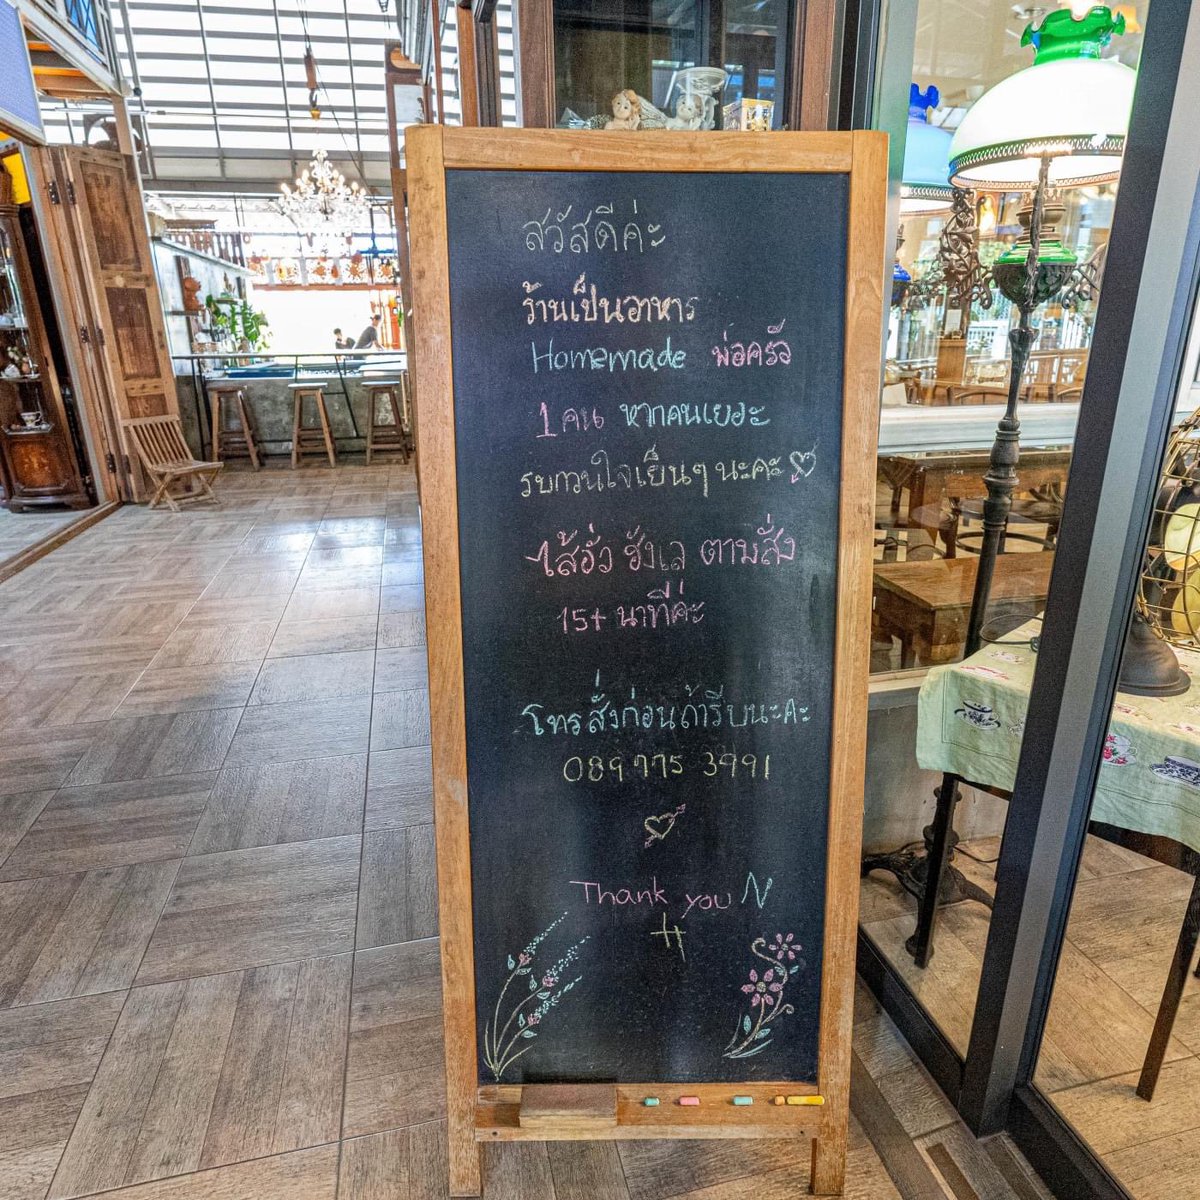 สวัสดีค่ะ
ร้านเป็นอาหาร
Homemade พ่อครัว
1 คน หากคนเยอะ
รบกวนใจเย็นๆ นะคะ
ไส้อั่ว ฮังเล ตามสั่ง
15+ นาทีค่ะ
โทรสั่งก่อนถ้ารีบนะคะ
089 775 3991
Thank you